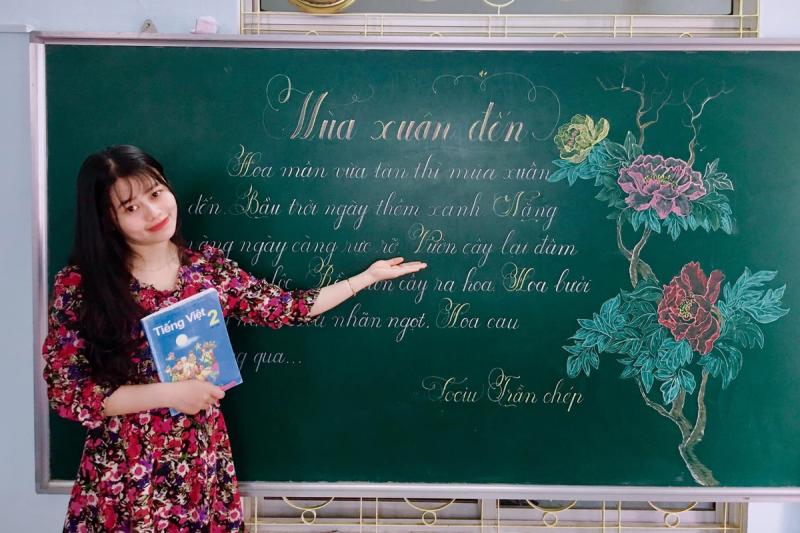 Mùa xuân đến
Hoa mận vừa tàn thì mùa xuân
đến. Bầu trời ngày thêm xanh. Nắng
vàng ngày càng rực rỡ. Vườn cây lại đâm
lộc. cây ra hoa. Hoa bưởi
nhãn ngọt. Hoa cau
qua...
Trần chép
Tiếng Việt 2